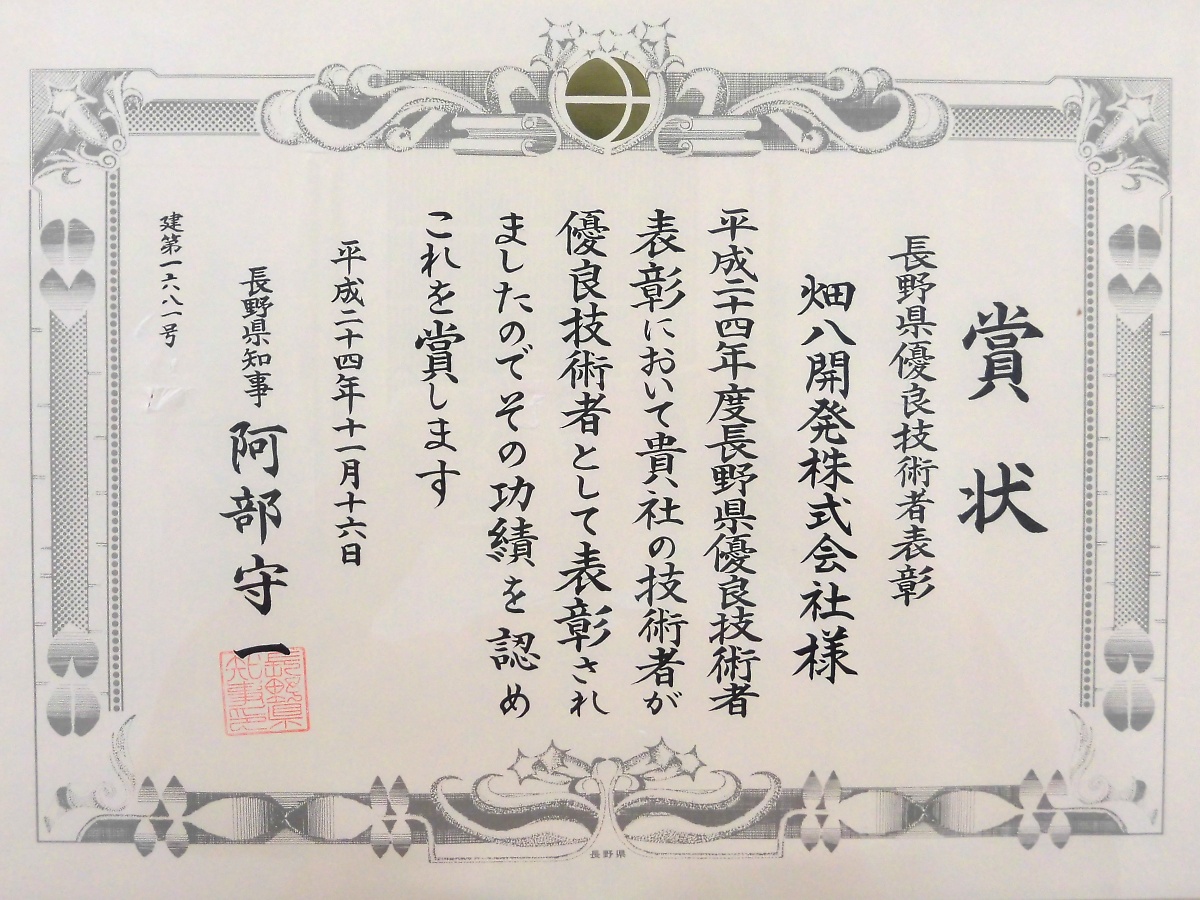 賞状
長野県優良技術者表彰
畑八開発株式会社様
平成二十四年度長野県優良技術者
表彰において貴社の技術者が
優良技術者として表彰され
ましたのでその功績を認め
これを賞します
平成二十四年十一月十六日
長野県知事 阿部守一
長野県知事之印
建第一六八一号
長野県